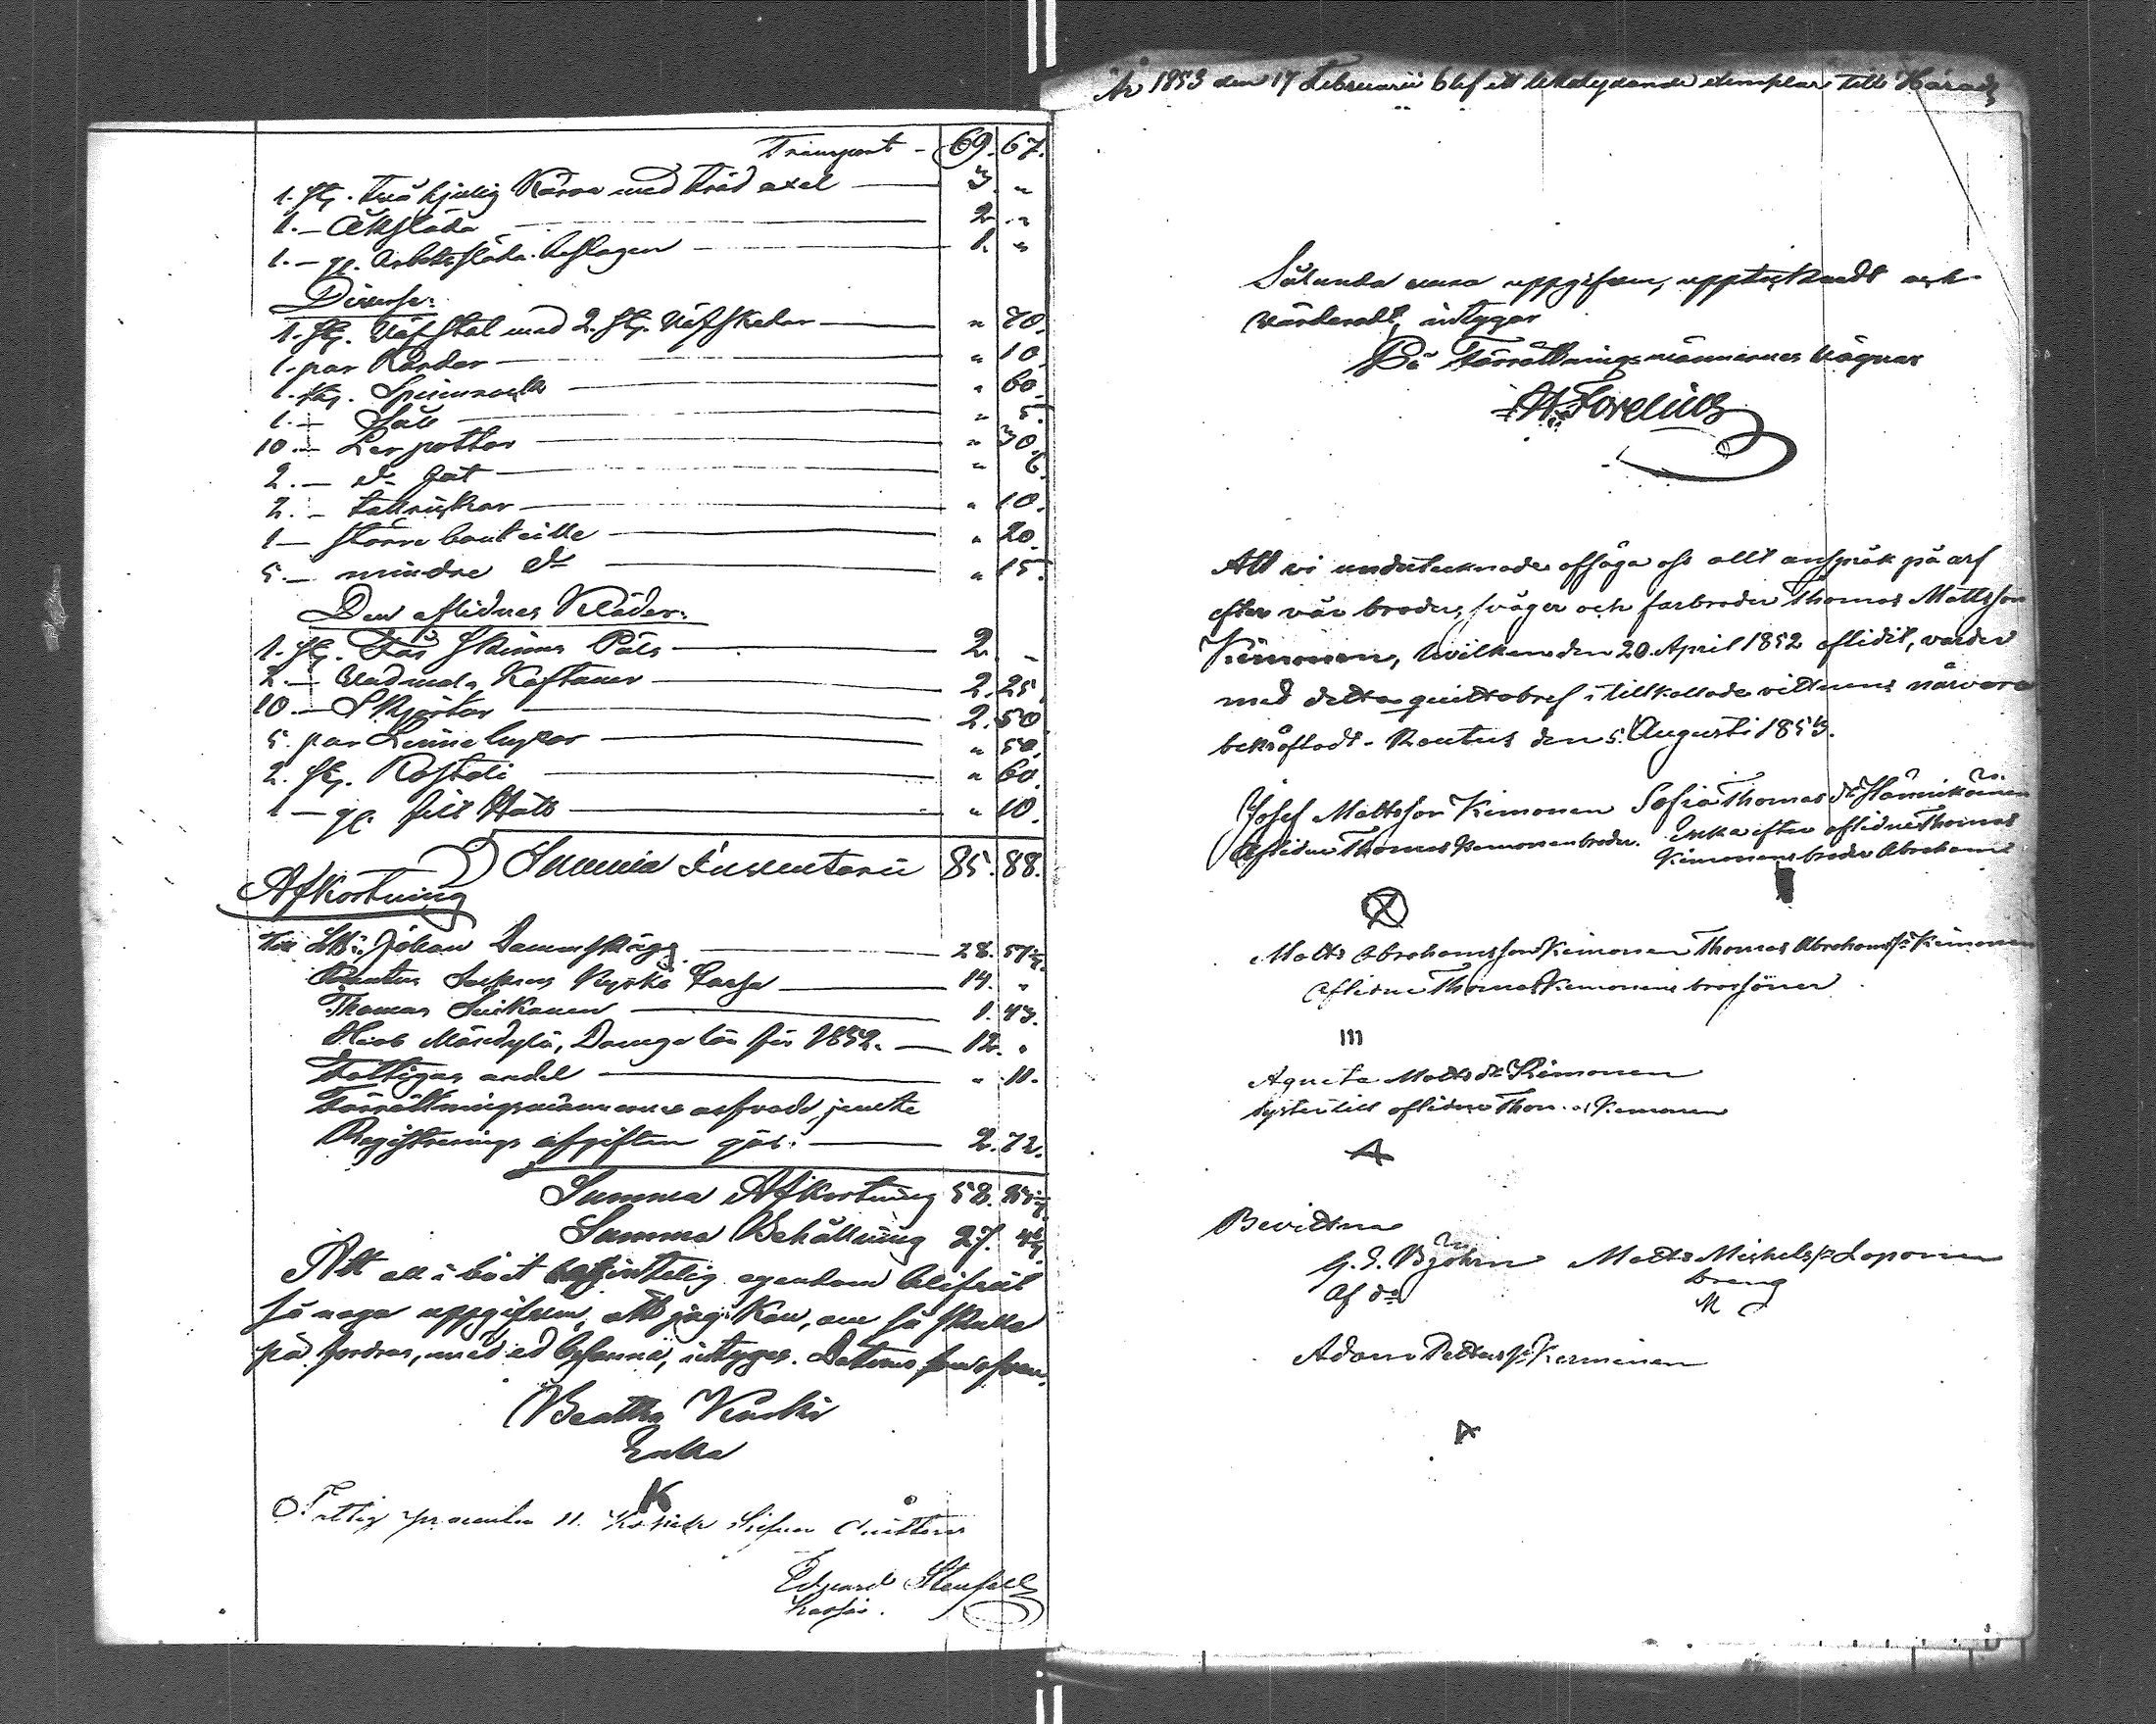 Transport - 69. 67.
1. st. två hjulig Kärra med träd axel — 3. "
1. — Åkslāda — 2. "
1. — gl. Arbetsslāda beslagen — 1. "
Diverse:
1. st. Väfstol med 2. st. Väfskedar — " 70.
1. par Kardor — " 10.
1. st. Spinnrock — " 60.
1. — Såll — " 5.
10. — Ler pottor — " 30.
2. — do fat — " 6.
2. — tallrickar — " 10.
1 — större bouteille — " 20.
5. — mindre do — " 15.
Den aflidnes Kläder:
1. st. Får Skinns Päls — 2. "
2. — Vadmals Kaftaner — 2. 25.
10. — Skjortor — 2. 50.
5. par Linne byxor — " 50.
2. st. Kostoli — " 60.
1 — gl. filt Hatt — " 10.
Summa Inventarii 85. 88.
Afkortning
Till Johan Dannskägg — 28. 57
Rautus Sockens Kyrko Cassa — 14. "
Thomas Suikanen — 1. 43.
Hoob Mäschylä, Drängelön för 1852. — 12. "
Fattigas andel — " 11.
Förrättningsmännernes arfvode, jemte
Registrerings afgiften gör: — 2. 72.
Summa Afkortning 58.
Summa Behållning 27.
Att all i boet befintelig egendom blifvit
så noga uppgifven, att jag kan, om så skulle
på fordras, med ed besanna, intygar. Datum som ofvan.
Beatha Kaski
Enka
K
Fattig procenten 11. Kopek Silfver
Edvard
Kassör.
År 1853 den 17 Februarii blef ett likalydande exemplar till Härads
Sålunda vara uppgifven, upptecknadt och
värderadt, intygar
På Förrättningsmännernes vägnar
Forelius
Att vi undertecknade afsäga oss allt anspråk på arf
efter vår broder, svåger och farbroder Thomas Mattsson
Kimonen, hvilken den 20. April 1852 aflidit, varder
med detta quittobref i tillkallade vittnens närvaro
bekräftadt. Rautus den 5. Augusti 1853.
Josef Mattsson Kimonen Sofia Thomas dr Hännikäinen
Aflidne Thomas Kimonens broder. Enka efter aflidne Thomas
Kimonens broder Abraham
X
Matts Abrahamsson Kimonen Thomas Abrahamss: Kimonen
Aflidne Thomas Kimonens brorsöner
m
Agneta Matts dr Kimonen
Syster till aflidne Thomas Kimonen
A
Bevittna
G. E. Björn Matts Michelss: Loponen
Af do dreng
M
Adam Petterss: Kerminen
A